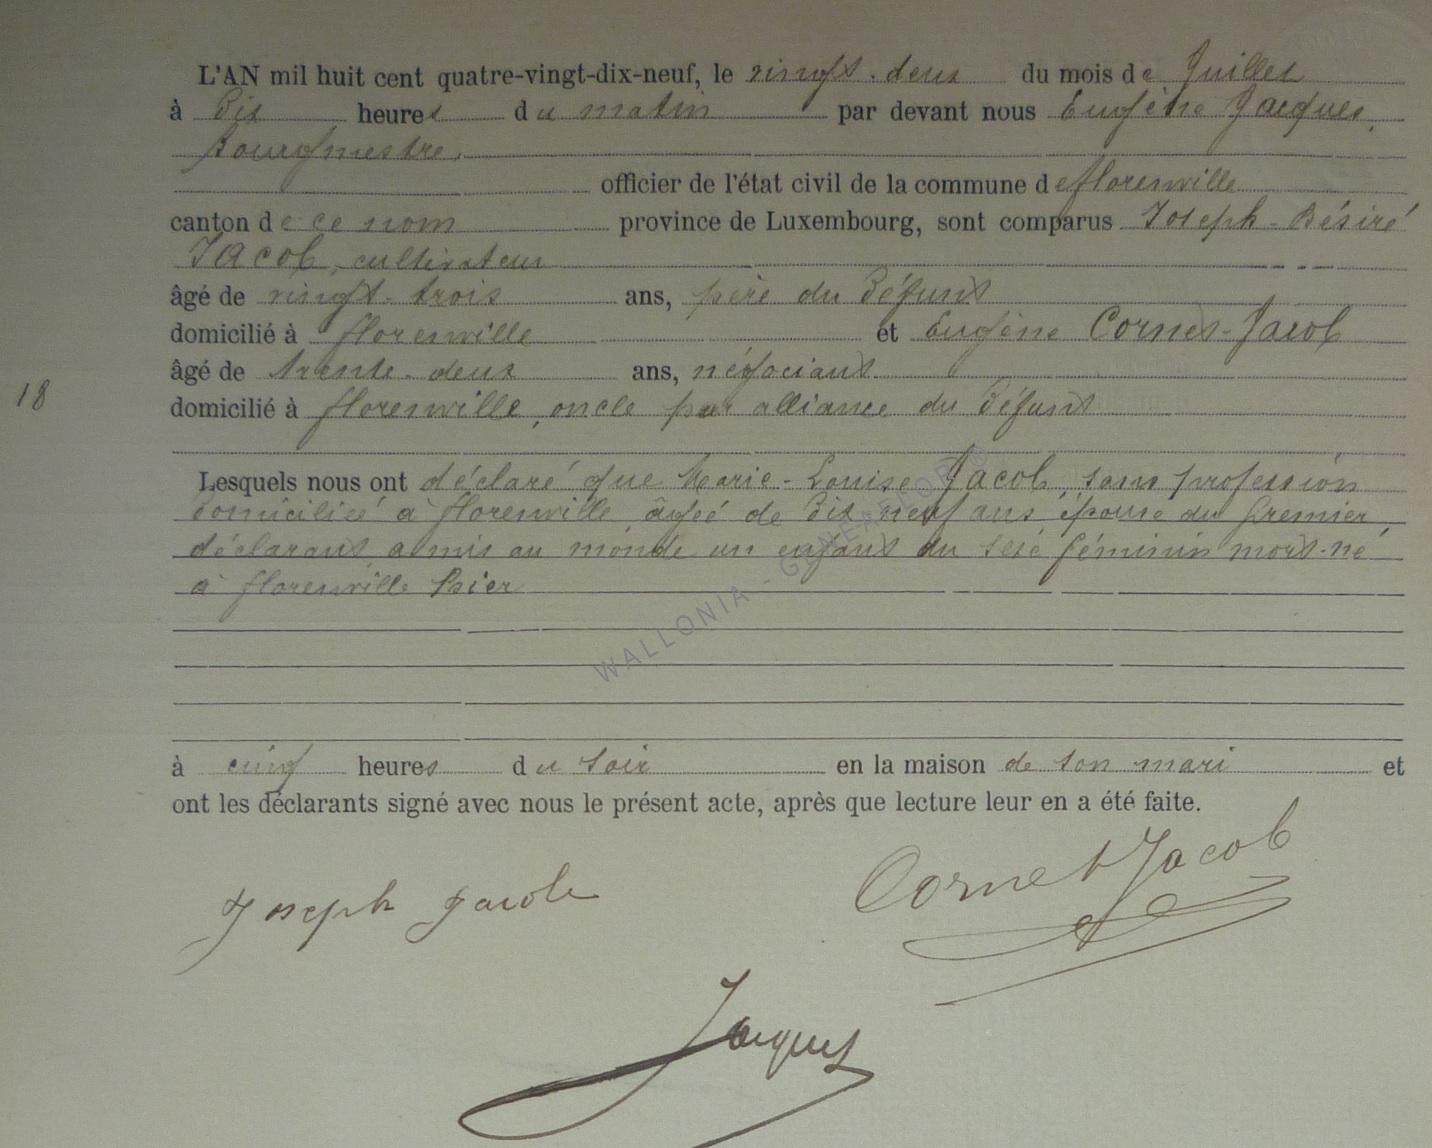 L'AN mil huit cent quatre-vingt-dix-neuf, le vingt-deux du mois de Juillet
à dix heures du matin par devant nous Eugène Jacques,
Bourgmestre,
officier de l'état civil de la commune de florenville
canton de ce nom province de Luxembourg, sont comparus Joseph-Désiré
Jacob, cultivateur
âgé de vingt-trois ans, père du défunt
domicilié à florenville et Eugène Cornet-Jacob
âgé de trente-deux ans, négociant
18
domicilié à florenville, oncle par alliance du défunt
Lesquels nous ont déclaré que Marie-Louise Jacob, sans profession
domiciliée à florenville, âgée de dix neuf ans, épouse du premier
déclarant a mis au monde un enfant du sexe féminin mort-né
à florenville hier
WALLONIA - GENEALOGIE
à cinq heures du soir en la maison de son mari et
ont les déclarants signé avec nous le présent acte, après que lecture leur en a été faite.
Joseph Jacob Cornet Jacob
Jacques